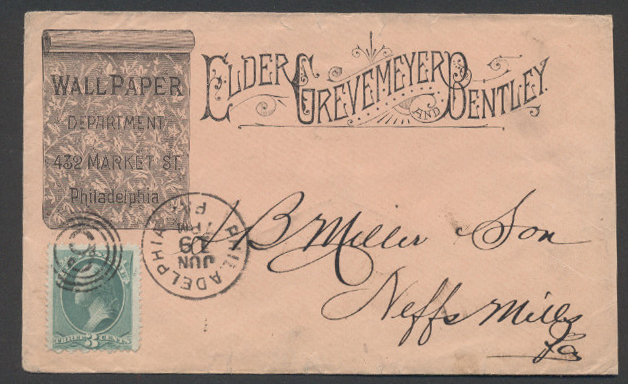 WALL PAPER
DEPARTMENT
432 MARKET ST.
Philadelphia
ELDER GREVEMEYER AND BENTLEY.
PHILADELPHIA
JUN
7 PM
B Miller Son
Neffs Mills
Pa
3